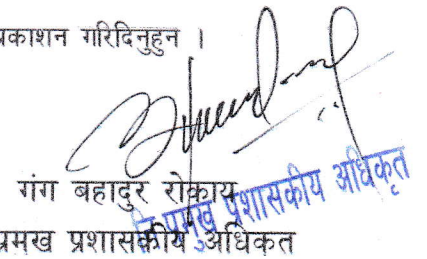 प्रकाशन गरिदिनुहुन ।
गंग बहादुर रोकाय
प्रमुख प्रशासकीय अधिकृत
प्रमुख प्रशासकीय अधिकृत